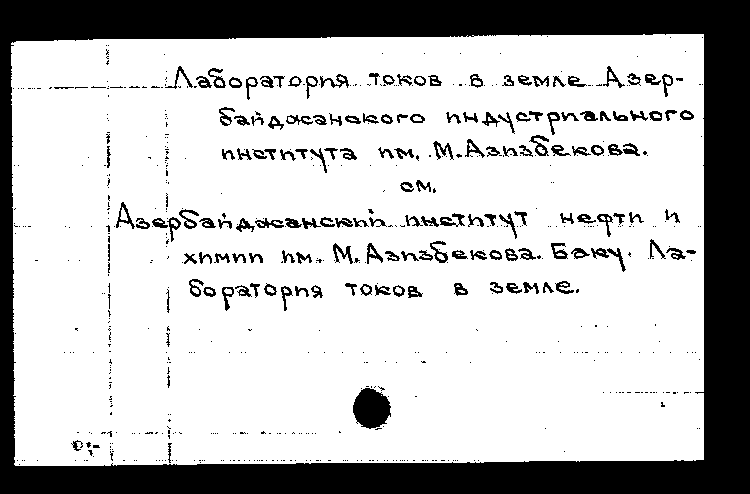 Лаборатория токов в земле Азер-
байджанского индустриального
института им. М. Азизбекова.
см.
Азербайджанский институт нефти и
химии им. М. Азизбекова. Баку. Ла-
боратория токов в земле.